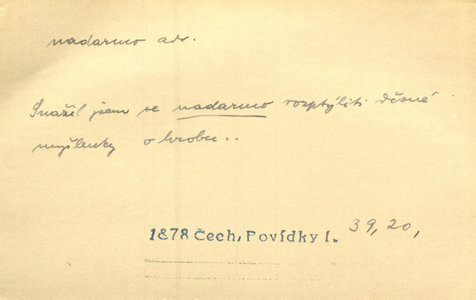 nadarmo adv.
Snažil jsem se nadarmo rozptýliti děsné
myšlenky o hrobu..
1878 Čech, Povídky 1. 39, 20,